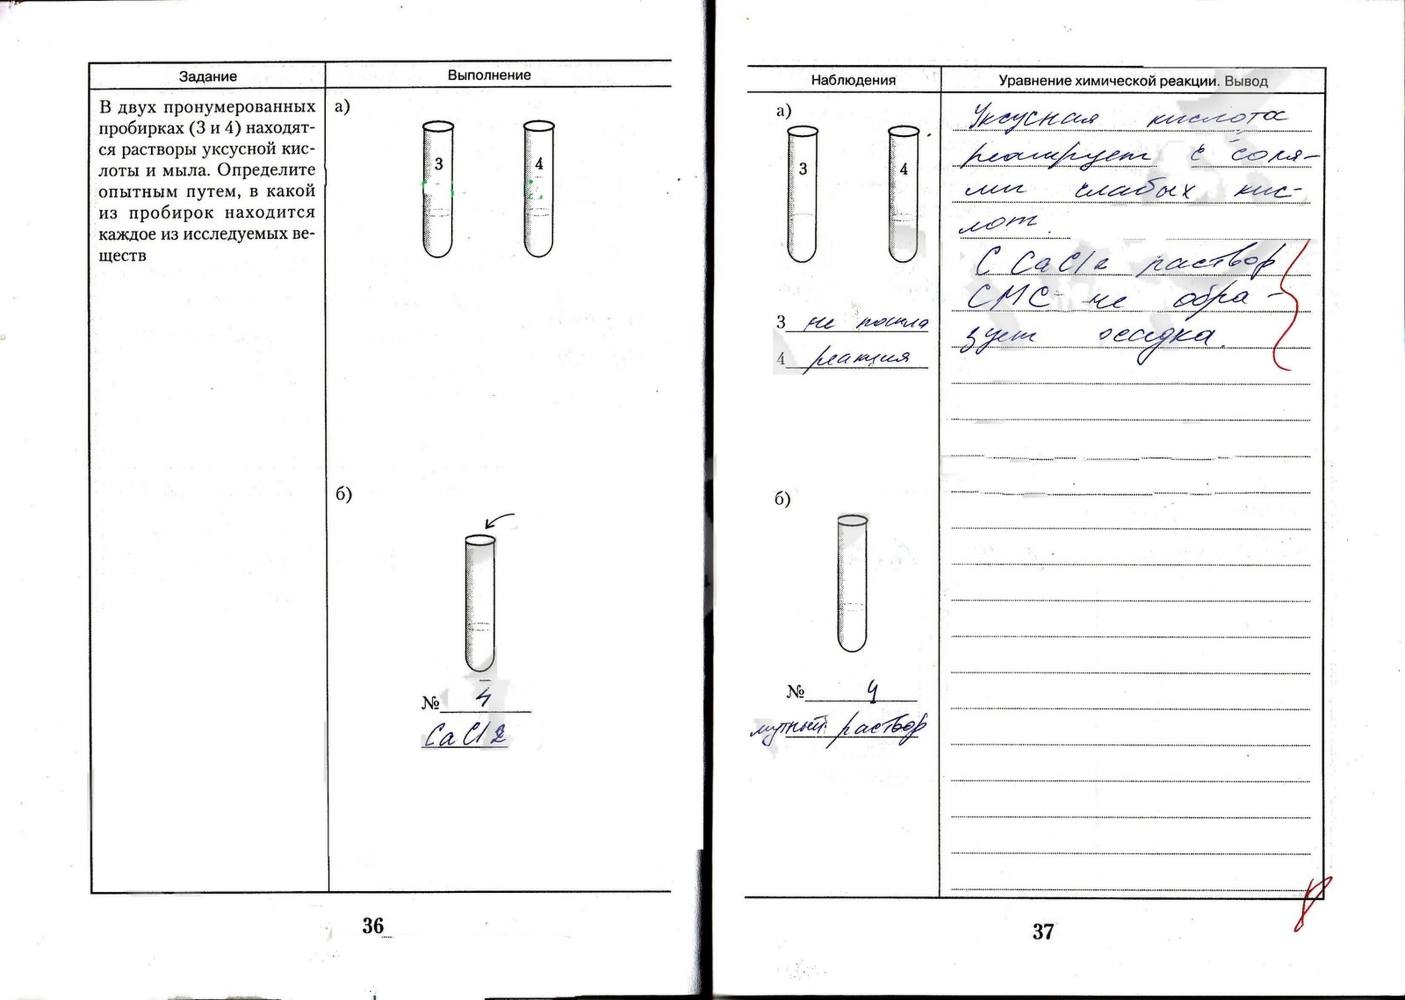 Задание
Выполнение
В двух пронумерованных
пробирках (3 и 4) находят-
ся растворы уксусной кис-
лоты и мыла. Определите
опытным путем, в какой
из пробирок находится
каждое из исследуемых ве-
ществ
а)
3
4
б)
№ 4
CaCl2
36
Наблюдения
Уравнение химической реакции. Вывод
а)
3
4
3 не пошла
4 реакция
б)
№ 4
мутный раствор
Уксусная кислота
реагирует с соля-
ми слабых кис-
лот.
С CaCl2 раствор
СМС не обра-
зует осадка.
37